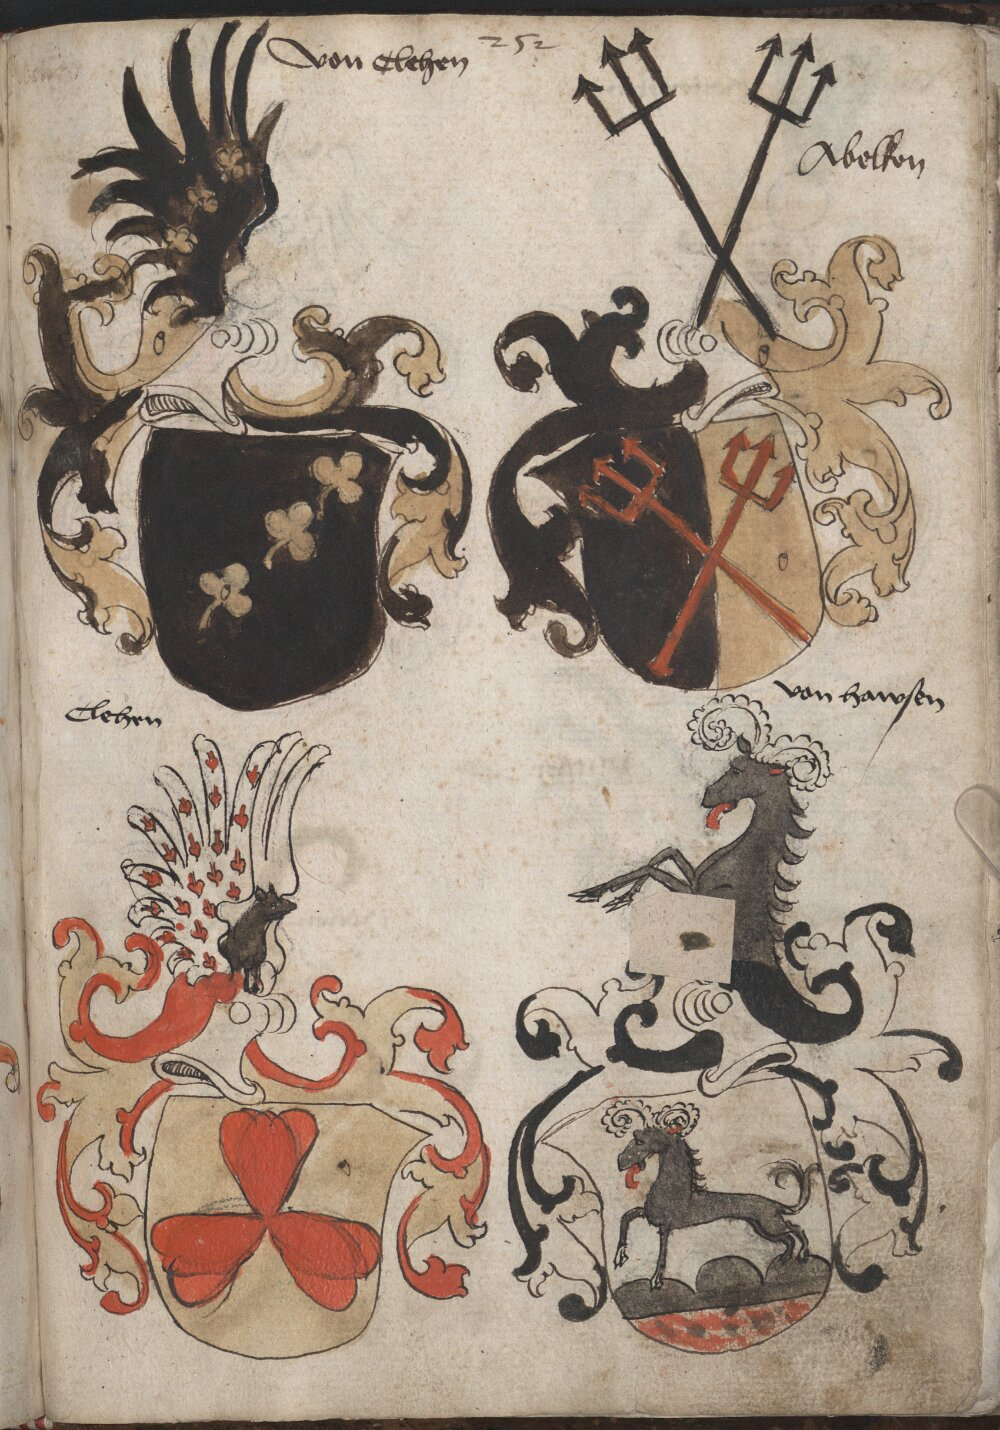 von Clehen
252
Abelkon
Clehen
von hawsen